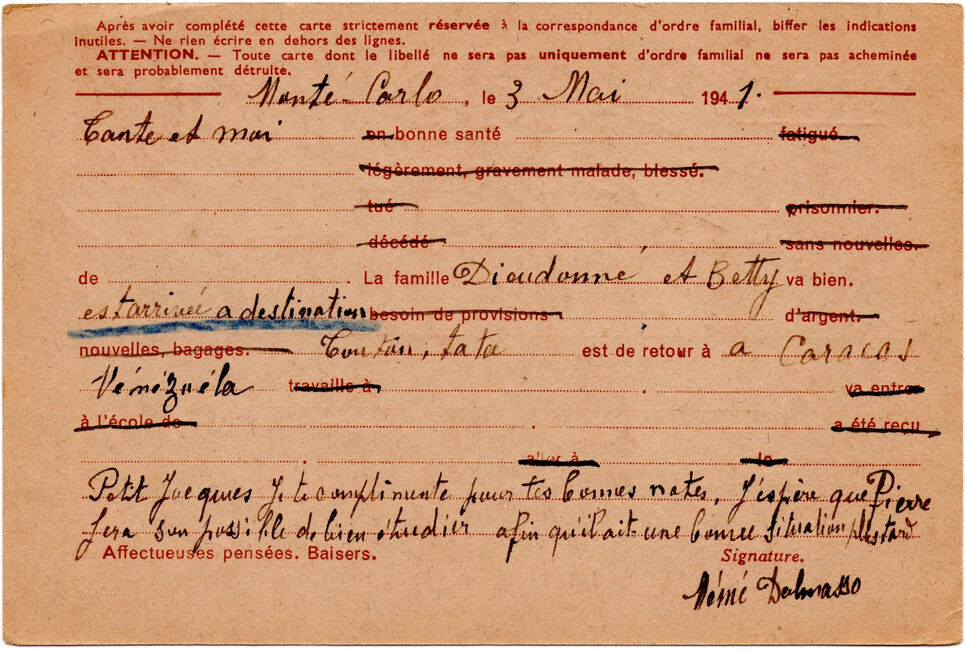 Après avoir complété cette carte strictement réservée à la correspondance d'ordre familial, biffer les indications
inutiles. — Ne rien écrire en dehors des lignes.
ATTENTION. — Toute carte dont le libellé ne sera pas uniquement d'ordre familial ne sera pas acheminée
et sera probablement détruite.
Monté-Carlo, le 3 Mai 1941.
Tante et moi en bonne santé fatigué.
légèrement, gravement malade, blessé.
tué prisonnier.
décédé sans nouvelles.
de . La famille Dieudonné et Betty va bien.
est arrivée a destination besoin de provisions d'argent.
nouvelles, bagages. Tonton, tata est de retour à a Caracas
Vénézuéla travaille à . va entrer
à l'école de . a été reçu
aller à le
Petit Jacques je te complimente pour tes bonnes notes, J'espère que Pierre
fera son possible de bien étudier afin qu'il ait une bonne situation plustard
Affectueuses pensées. Baisers. Signature.
Mémé Dalmasso